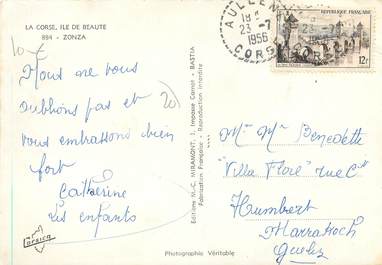 LA CORSE, ILE DE BEAUTÉ
894 - ZONZA
10 €
Nous ne vous
oublions pas et
vous embrassons bien
fort
Catherine
Les enfants
20
corsica
Photographie Véritable
Editions M.-C. MIRAMONT, 1, Impasse Carnot - BASTIA
Fabrication Française - Reproduction Interdite
AULLENE
23 - 7
1956
CORSE
REPUBLIQUE FRANÇAISE
12F
Mr Mme Benedette
"Villa Flore" rue Ct
Humbert
Marrakech
Gueliz